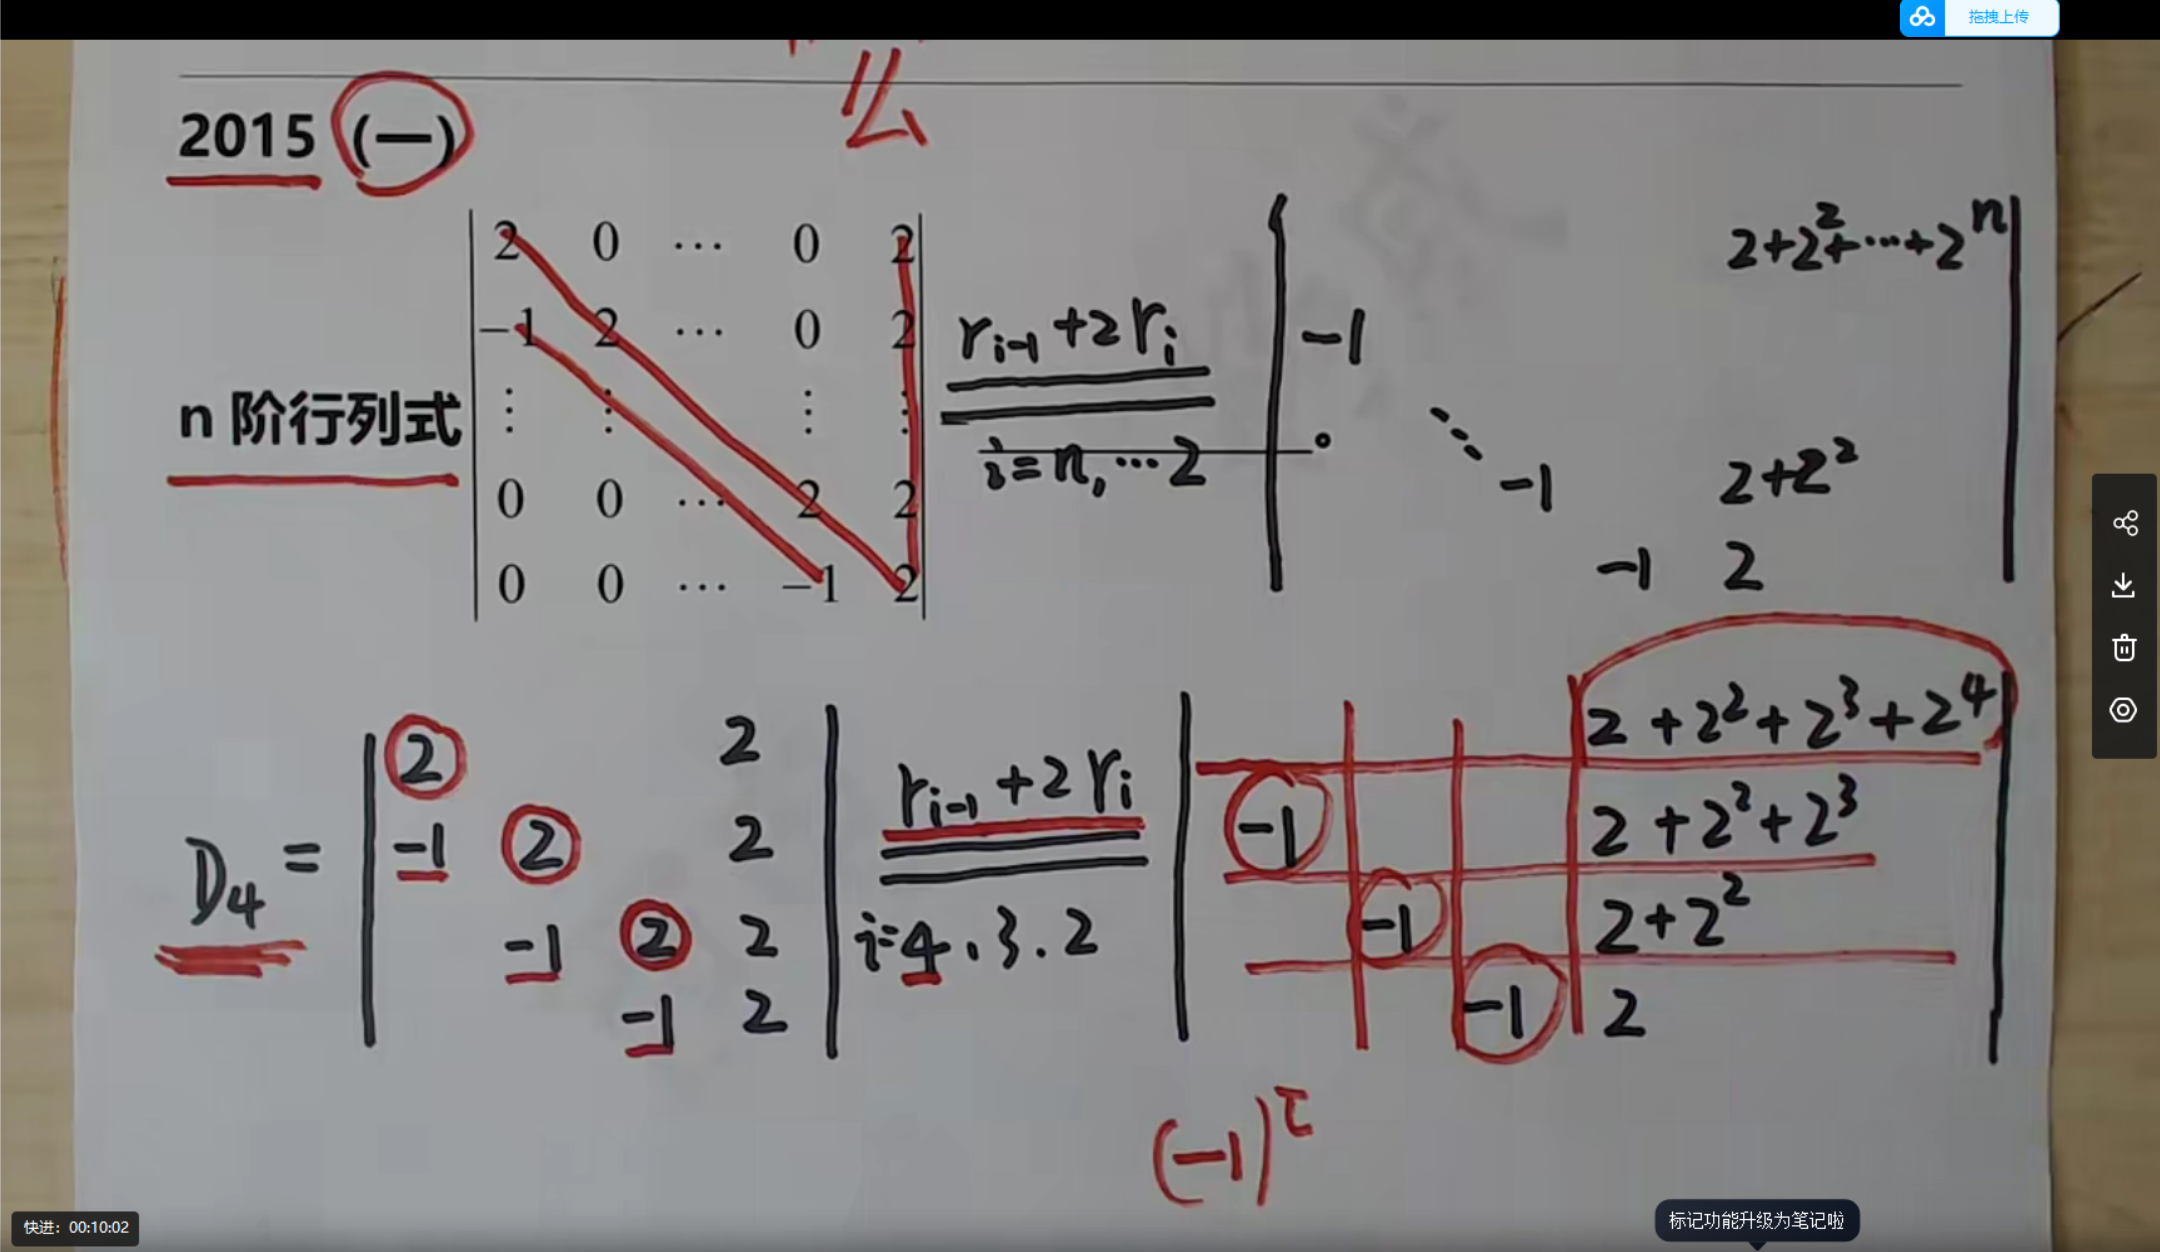 拖拽上传
么
2015 (一)
n 阶行列式
2 0 ⋯ 0 2
−1 2 ⋯ 0 2
⋮ ⋮ ⋮ ⋮
0 0 ⋯ 2 2
0 0 ⋯ −1 2
rᵢ₋₁ + 2rᵢ
i = n, ⋯ 2
2+2²+⋯+2ⁿ
-1
-1 2+2²
-1 2
D₄ =
2 2
-1 2 2
-1 2 2
-1 2
rᵢ₋₁ + 2rᵢ
i=4.3.2
2 + 2² + 2³ + 2⁴
-1 2 + 2² + 2³
-1 2 + 2²
-1 2
(-1)
快进：00:10:02
标记功能升级为笔记啦